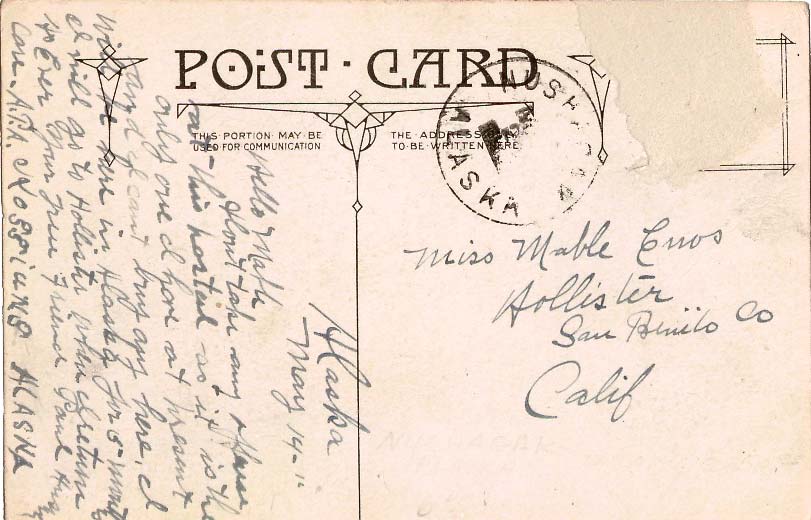 POST · CARD
THIS PORTION MAY BE
USED FOR COMMUNICATION
THE ADDRESS ONLY
TO BE WRITTEN HERE
NUSHAGAK
ALASKA
Miss Mable Enos
Hollister
San Benito Co
Calif
Alaska
May 14 - 11
Hello Mable
Don't take any offence
over this postal as it is the
only one I have at present
and I can't buy any here, I
will be here in Alaska for 5 mont
I will go to Hollister when I return
As Ever Your True Friend
Care A.P.A. ALASKA